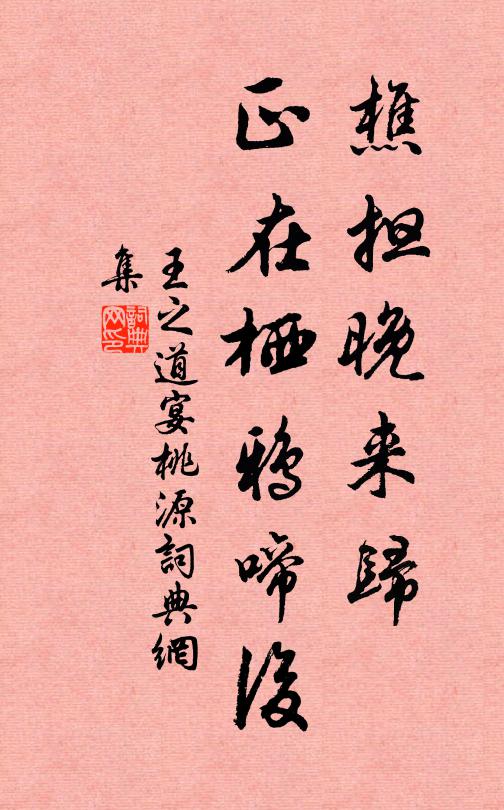 樵担晚来歸
正在栖鴉啼後
王之道宴桃源詞典網
集
詞典網印